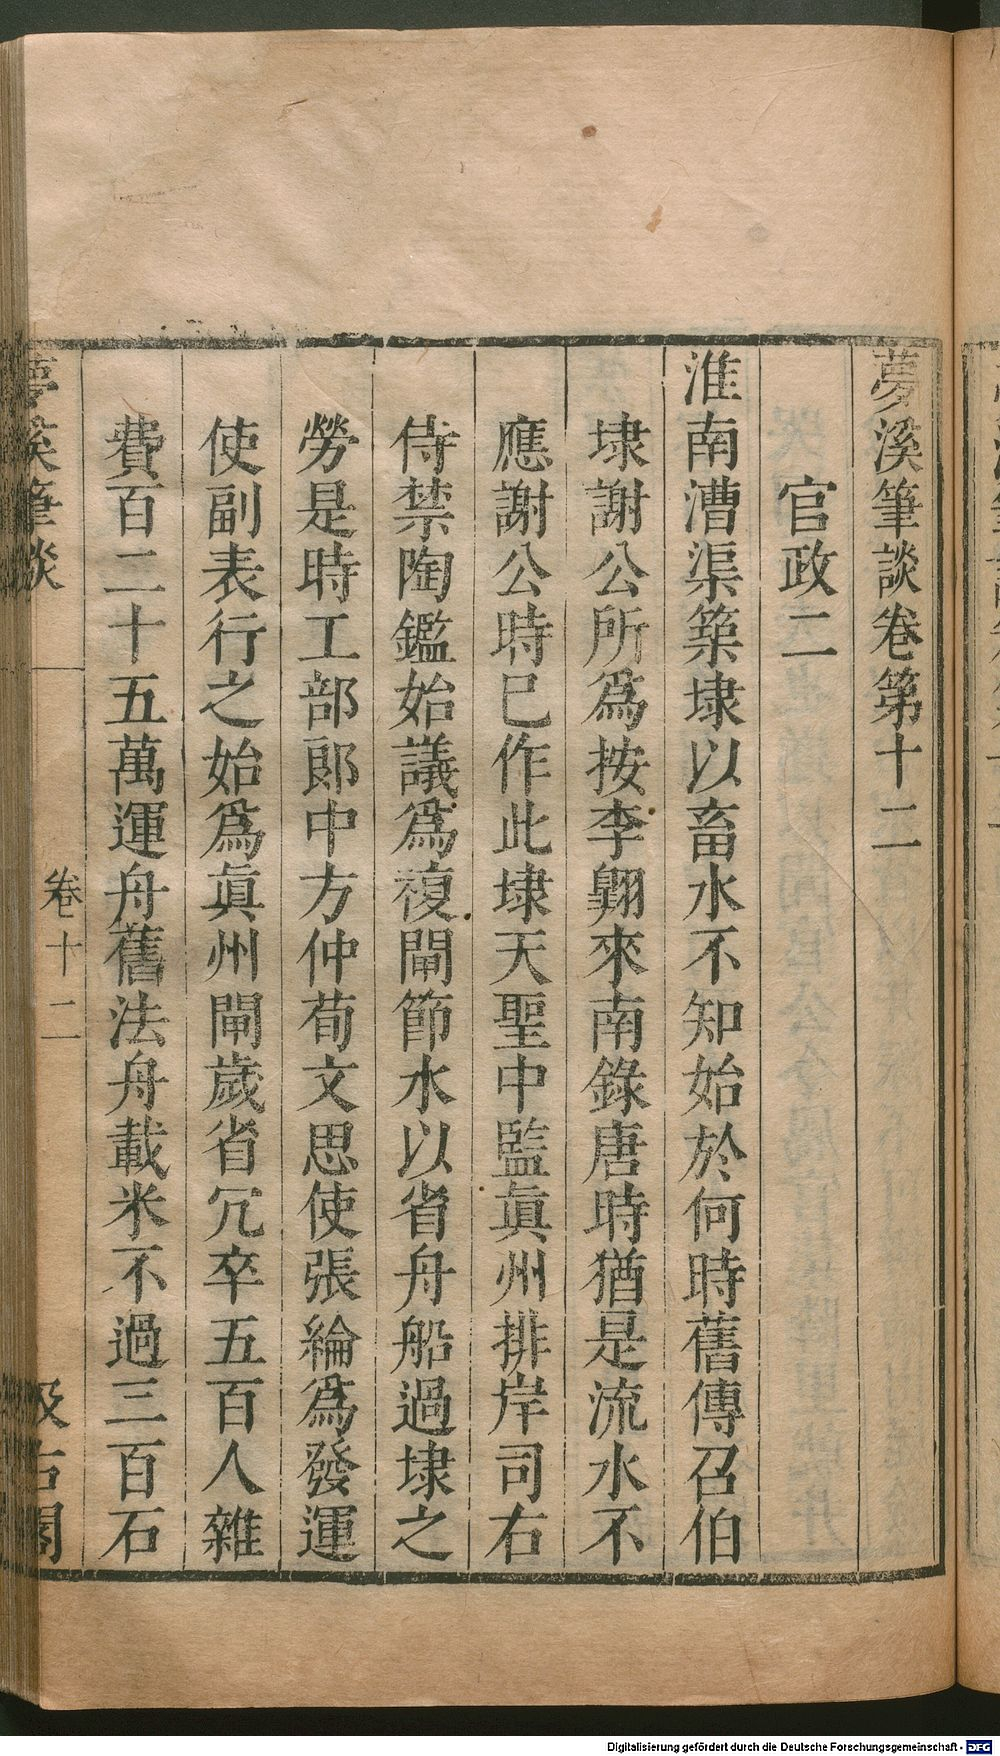 夢溪筆談卷第十二
官政二
淮南漕渠築埭以畜水不知始於何時舊傳召伯
埭謝公所爲按李翺來南錄唐時猶是流水不
應謝公時已作此埭天聖中監眞州排岸司右
侍禁陶鑑始議爲複閘節水以省舟船過埭之
勞是時工部郞中方仲荀文思使張綸爲發運
使副表行之始爲眞州閘歲省冗卒五百人雜
費百二十五萬運舟舊法舟載米不過三百石
夢溪筆談
卷十二
汲古閣
Digitalisierung gefördert durch die Deutsche Forschungsgemeinschaft - DFG